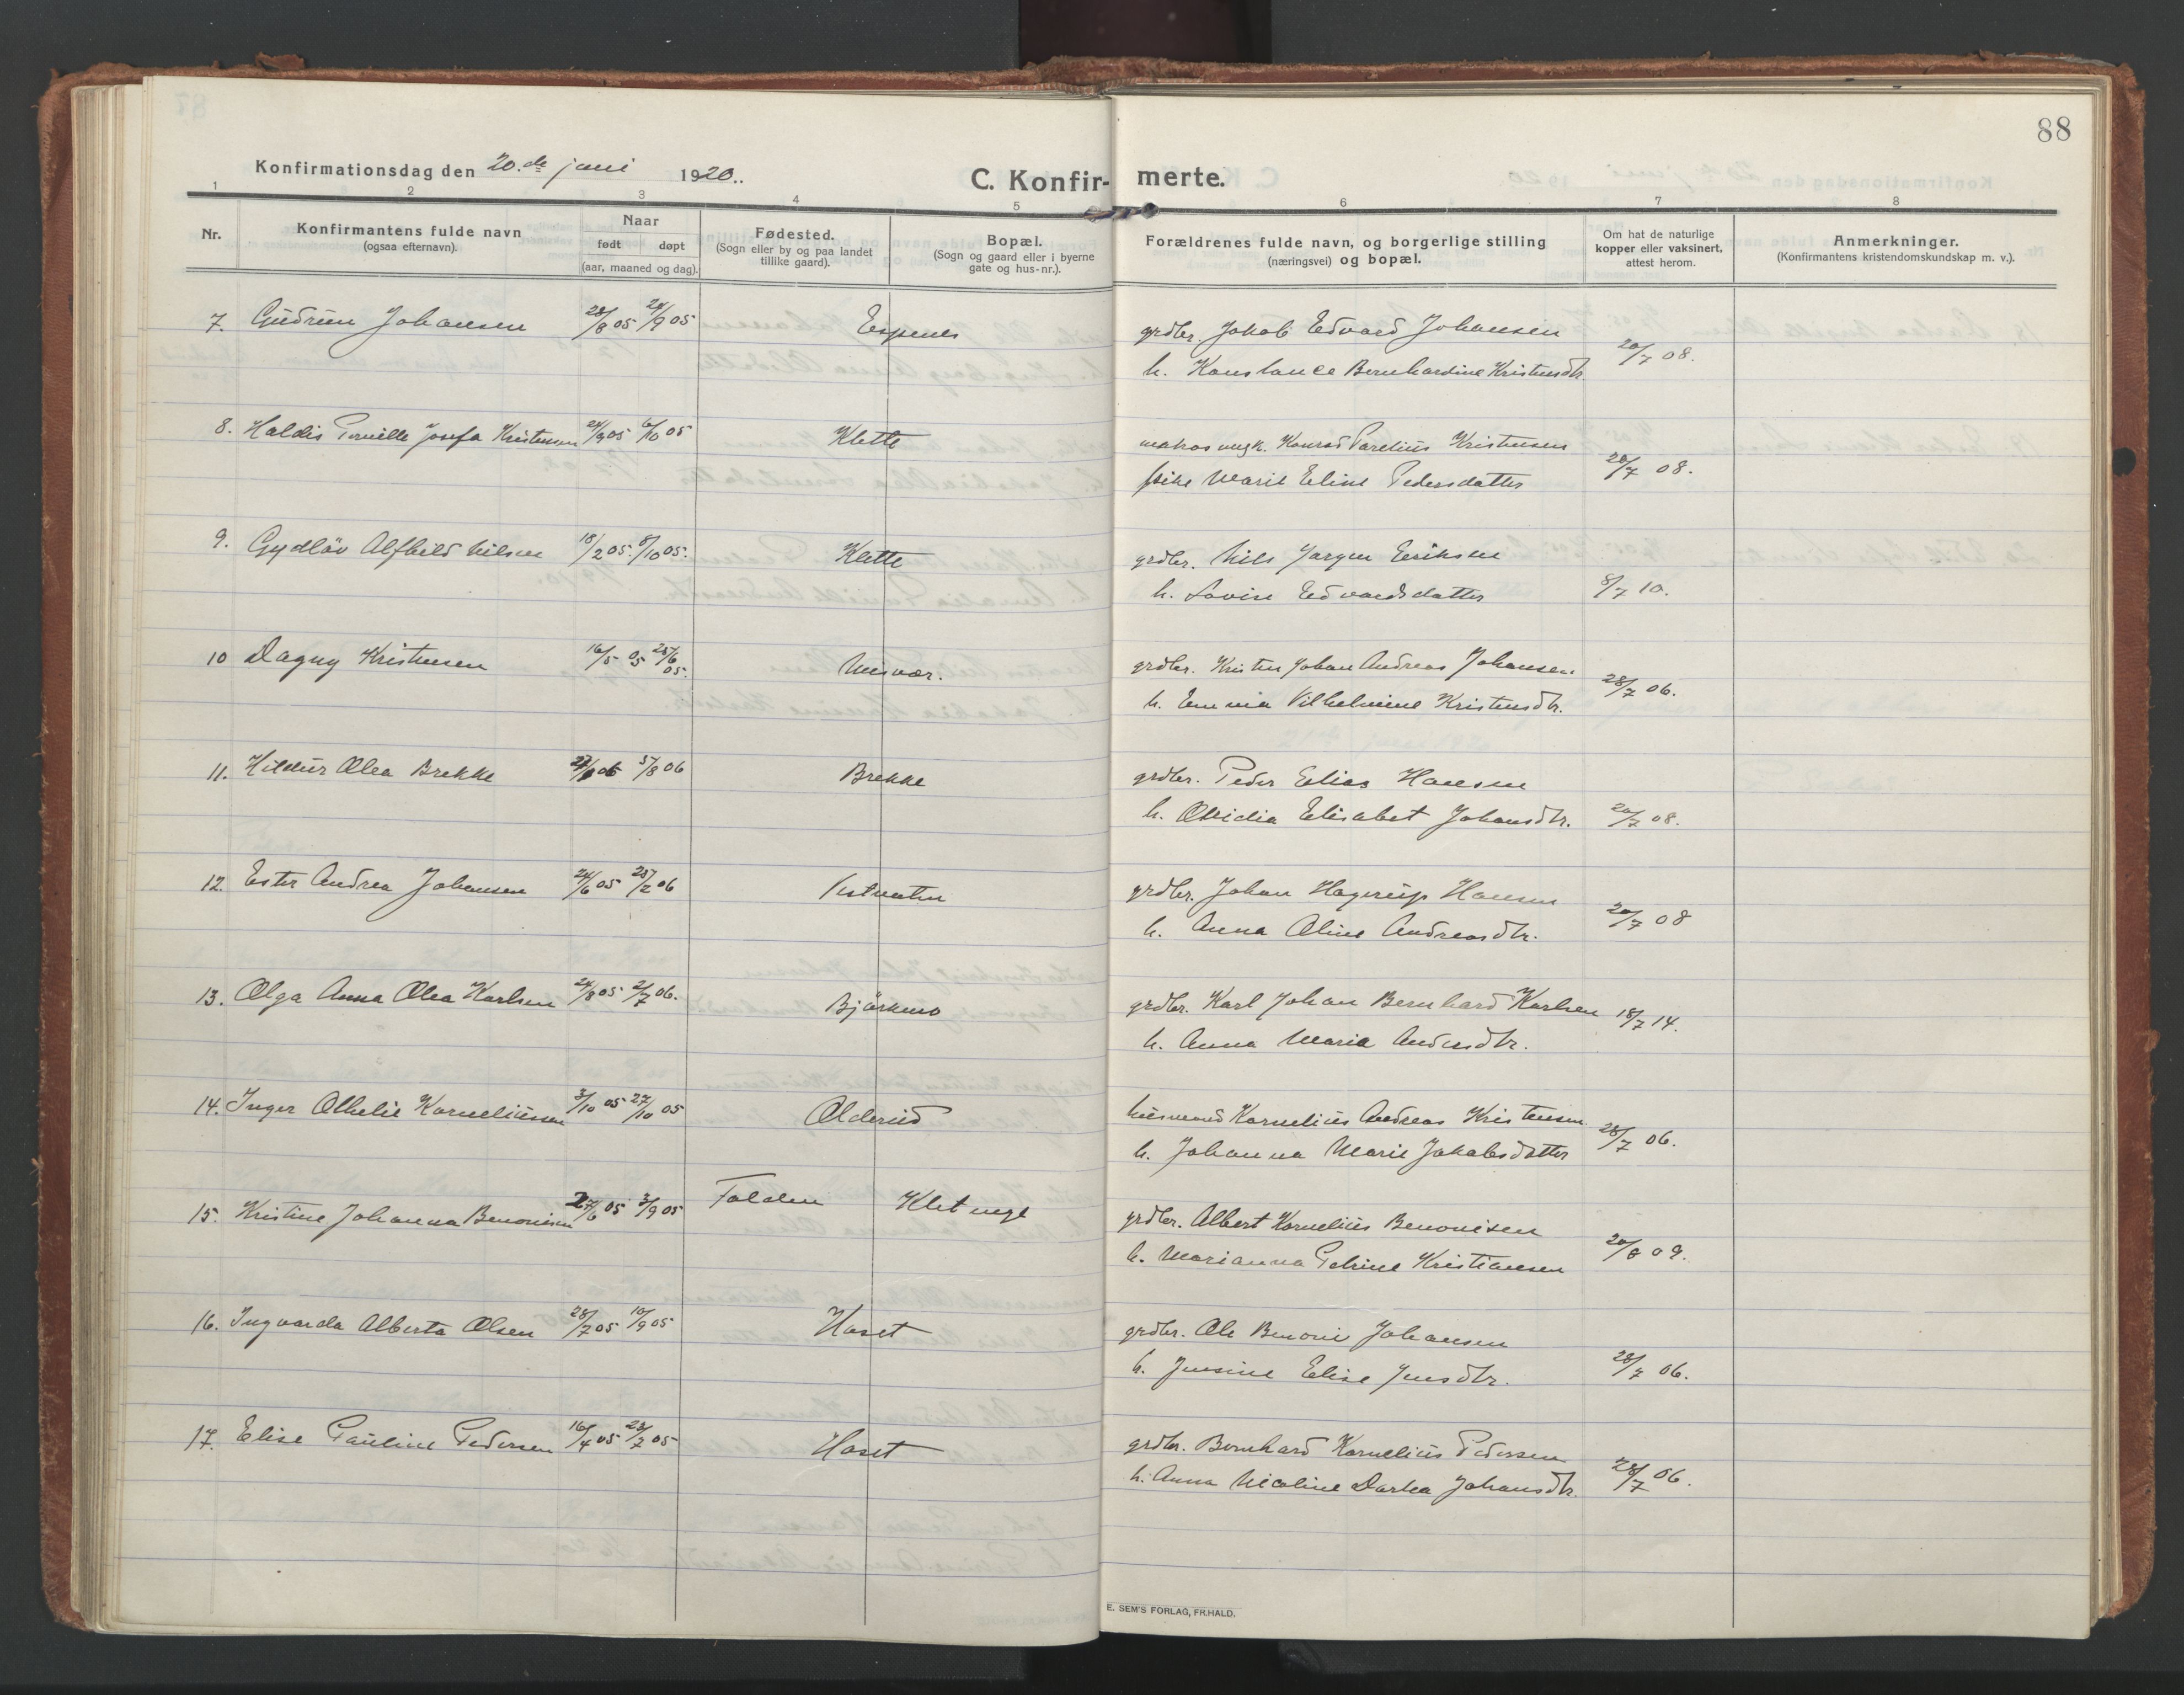 88
Konfirmationsdag den 20.de juni 1920.
C. Konfirmerte.
1 2 3 4 5 6 7 8
Nr.
Konfirmantens fulde navn
(ogsaa efternavn).
Naar
født døpt
(aar, maaned og dag).
Fødested.
(Sogn eller by og paa landet
tillike gaard).
Bopæl.
(Sogn og gaard eller i byerne
gate og hus-nr.).
Forældrenes fulde navn, og borgerlige stilling
(næringsvei) og bopæl.
Om hat de naturlige
kopper eller vaksinert,
attest herom.
Anmerkninger.
(Konfirmantens kristendomskundskap m. v.).
7. Gudrun Johansen 28/8 05 24/9 05 Espenes grdbr. Jakob Edvard Johansen
h. Konstance Bernhardine Kristensdtr. 20/7 08.
8. Haldis Pernille Josefa Kristensen 24/9 05 6/10 05 Klette Konrad Parelius Kristensen
Marie Eline Pedersdatter 20/7 08.
9. Gydløv Alfhild Nilsen 18/2 05. 8/10 05. Klette grdbr. Nils Jørgen Eriksen
h. Lovise Edvardsdatter 8/7 10.
10 Dagny Kristensen 16/5 05 25/6 05. grdbr. Kristen Johan Andreas Johansen
h. Emma Vilhelmine Kristensdtr. 28/7 06.
11. Hildur Olea Brekke 06 5/8 06 Brekke grdbr. Peder Elias Hansen
h. Ovidia Elisabet Johansdtr. 20/7 08.
12. Ester Andrea Johansen 24/6 05 25/2 06 grdbr. Johan Hagerup Hansen
h. Anna Oline Andreasdtr. 20/7 08
13. Olga Anna Olea Karlsen 24/8 05 2/7 06. Bjørkmo grdbr. Karl Johan Bernhard Karlsen 18/7 14.
h. Anna Maria Andersdtr.
14. Inger Othelie Korneliussen 3/10 05 27/10 05 Olderud husmand Kornelius Andreas Kristensen
h. Johanna Marie Jakobsdatter 28/7 06.
15. Kristine Johanna Benonisen 27/6 05 3/9 05 Folden grdbr. Albert Kornelius Benonisen
h. Marianna Petrine Kristiansen 20/8 09.
16. Ingvarda Alberta Olsen 28/7 05 10/9 05 Haset grdbr. Ole Benoni Johansen
h. Jensine Elise Jensdtr. 28/7 06.
17. Elise Pauline Pedersen 16/4 05 23/7 05 Haset grdbr. Bernhard Kornelius Pedersen
h. Anna Nicoline Dorthea Johansdtr. 28/7 06.
E. SEM'S FORLAG, FR.HALD.